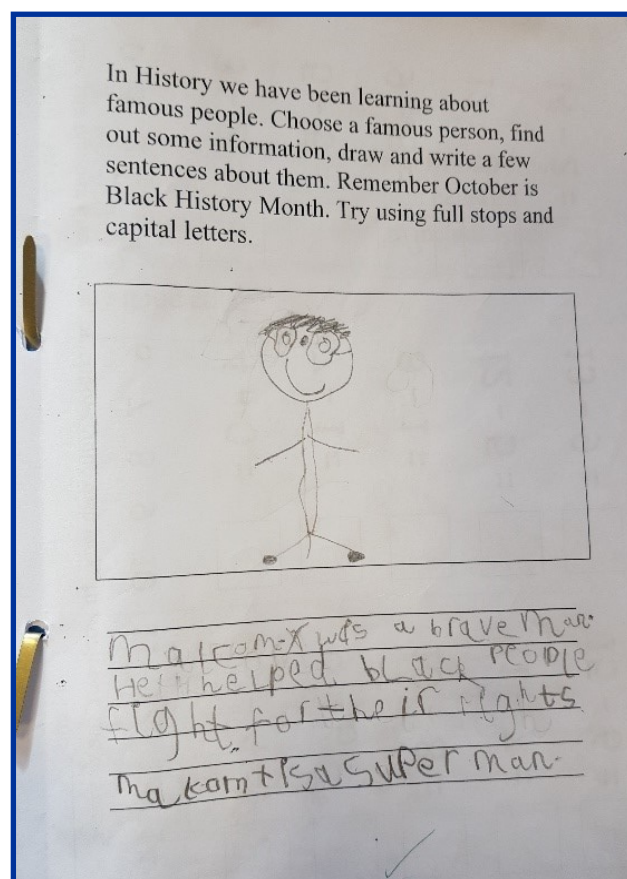 In History we have been learning about
famous people. Choose a famous person, find
out some information, draw and write a few
sentences about them. Remember October is
Black History Month. Try using full stops and
capital letters.
Malcom-X was a brave Man.
He helped black People
fight for their rights
Malkom+ is a Super Man.